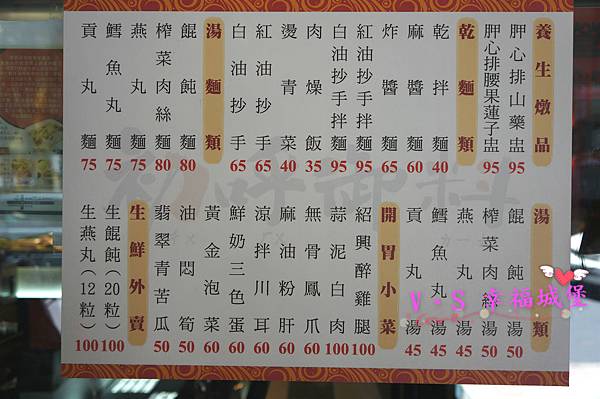 養生燉品
胛心排山藥盅 95
胛心排腰果蓮子盅 95
乾麵類
乾拌麵 40
麻醬麵 60
炸醬麵 65
紅油抄手拌麵 95
白油抄手拌麵 95
肉燥飯 35
燙青菜 40
紅油抄手 65
白油抄手 65
湯麵類
餛飩麵 80
榨菜肉絲麵 80
燕丸麵 75
鱈魚丸麵 75
貢丸麵 75
湯類
餛飩湯 50
榨菜肉絲湯 50
燕丸湯 45
鱈魚丸湯 45
貢丸湯 45
開胃小菜
紹興醉雞腿 100
蒜泥白肉 100
無骨鳳爪 60
麻油粉肝 60
涼拌川耳 60
鮮奶三色蛋 60
黃金泡菜 60
油悶筍 50
翡翠青苦瓜 50
生鮮外賣
生餛飩(20粒) 100
生燕丸(12粒) 100
V.S幸福城堡